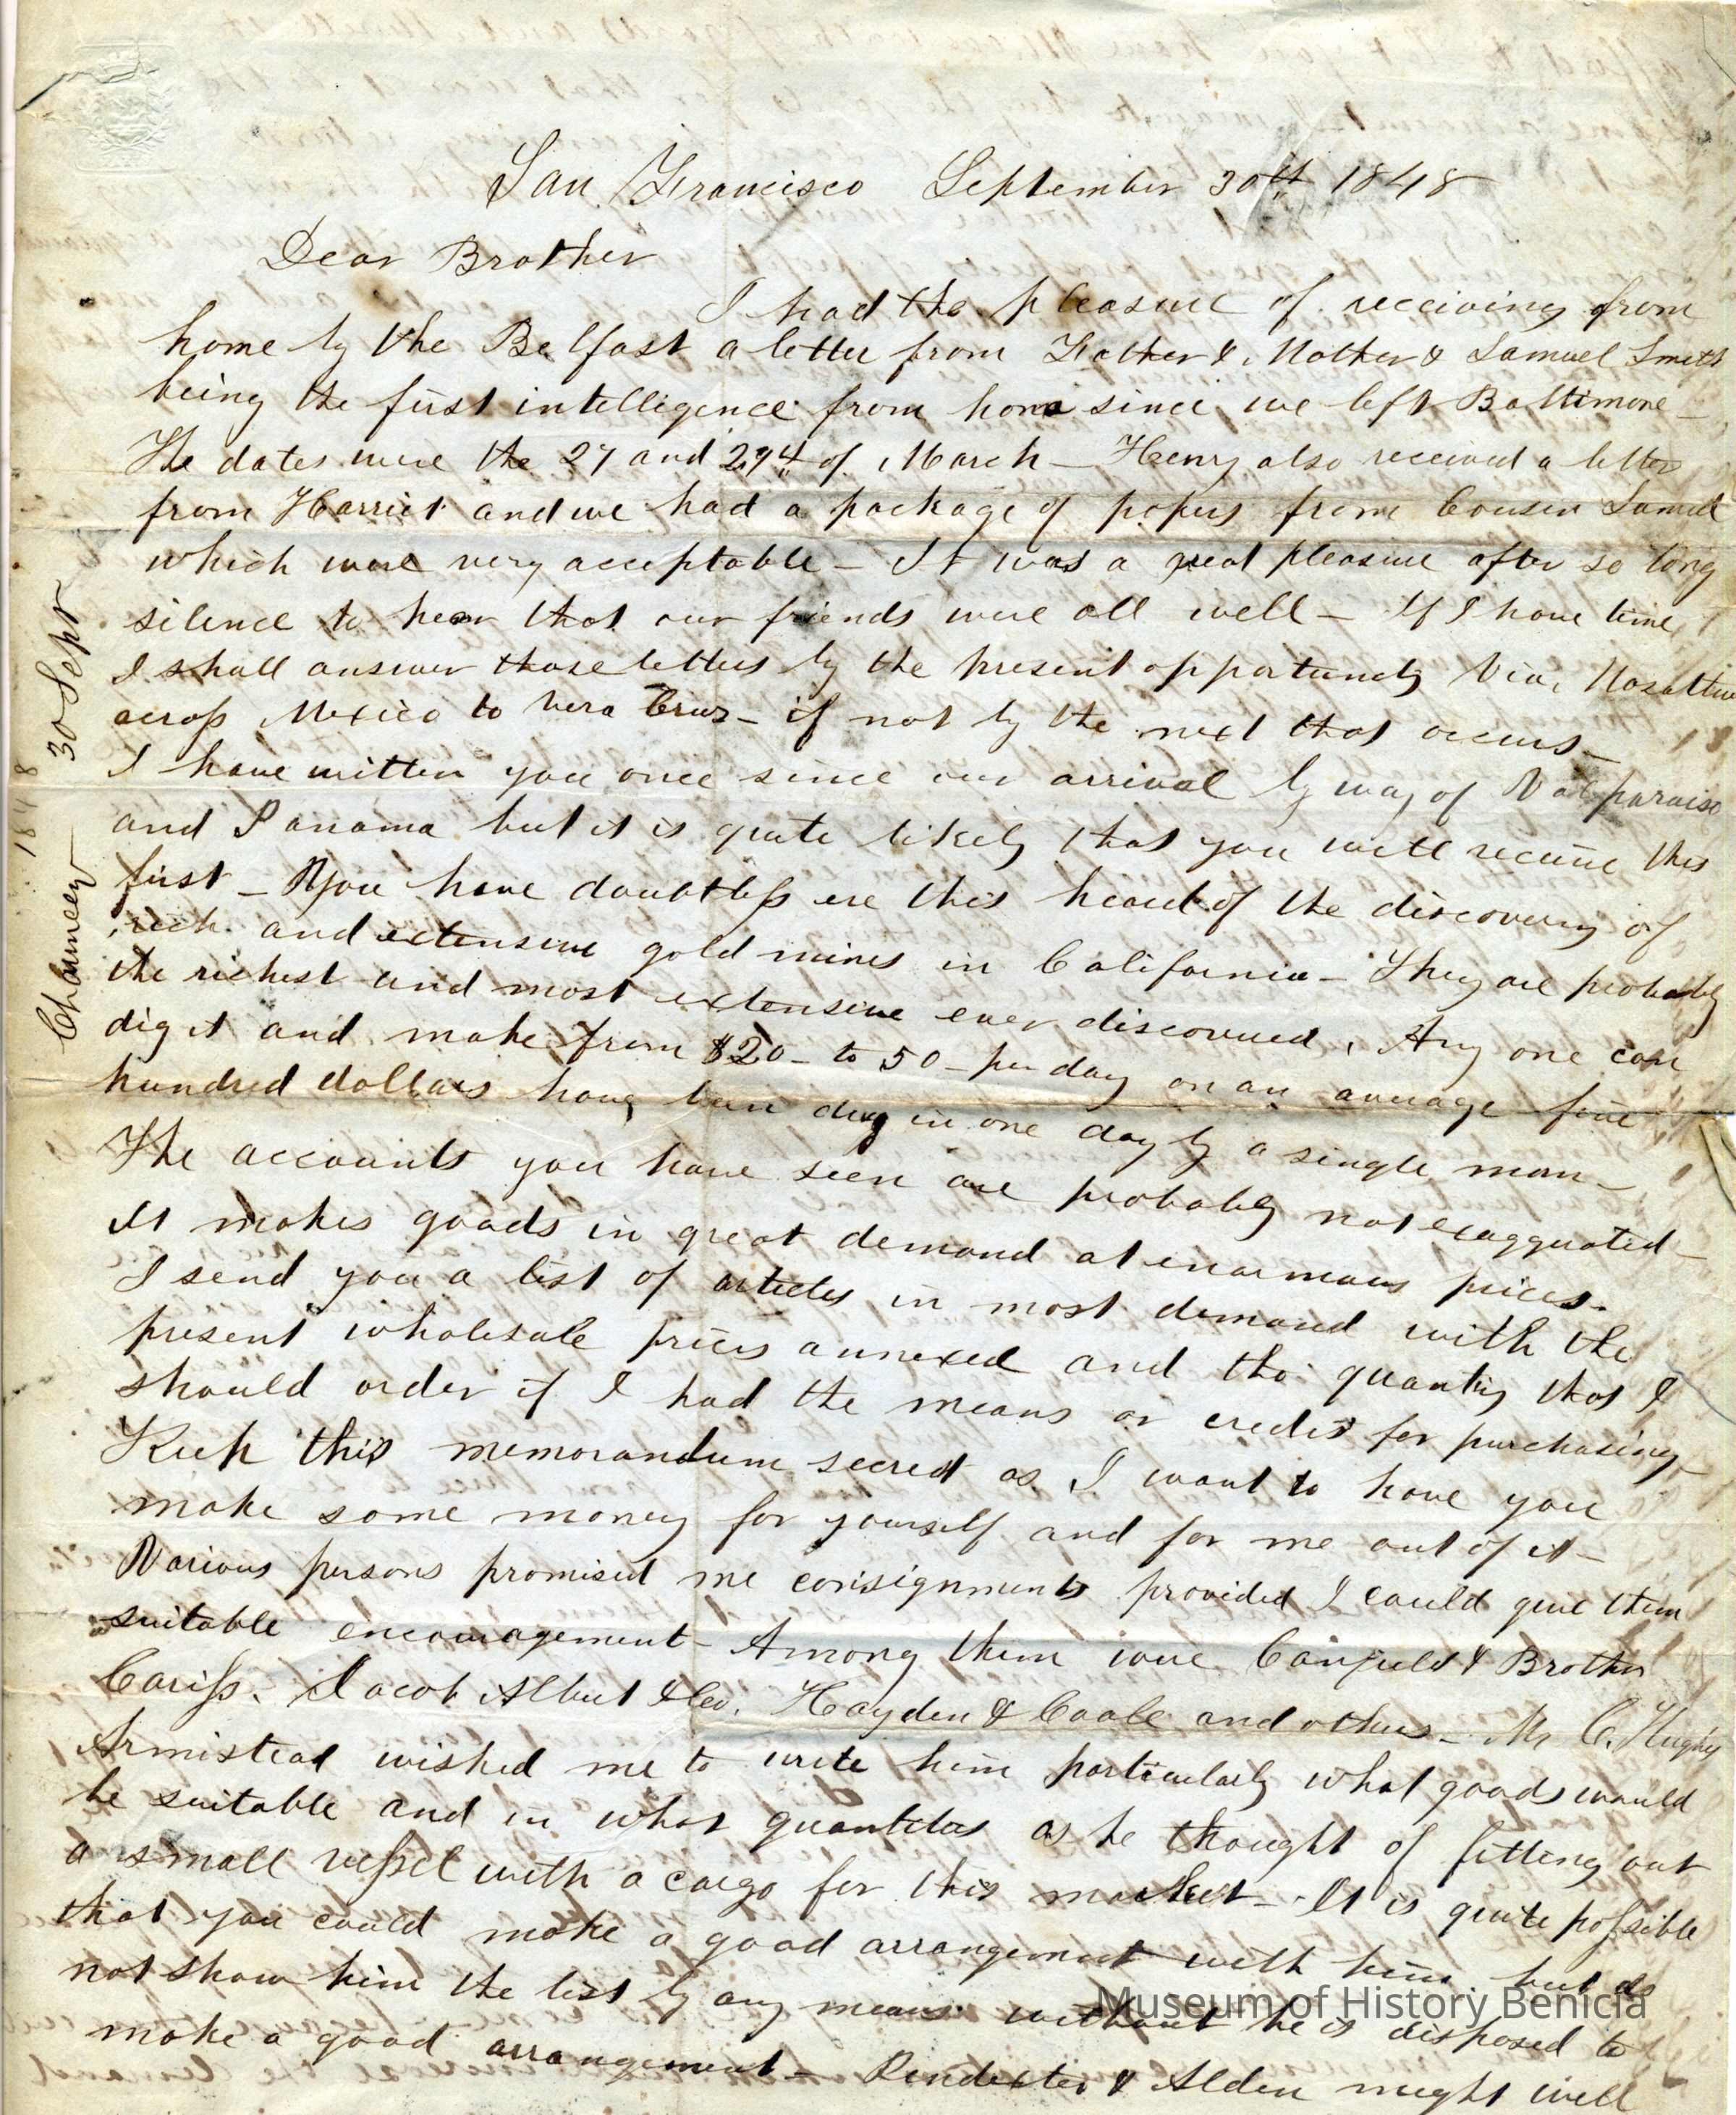 San Francisco September 30th 1848
Dear Brother
I had the pleasure of receiving from
home by the Belfast a letter from Father & Mother & Samuel Smith
being the first intelligence from home since we left Baltimore –
The dates were the 27 and 29th of March – Henry also received a letter
from Harriet and we had a package of papers from Cousin Samuel
which were very acceptable – It was a great pleasure after so long
silence to hear that our friends were all well – If I have time
I shall answer those letters by the present opportunity via Mazatlan
across Mexico to Vera Cruz – if not by the next that occurs –
I have written you once since our arrival by way of Valparaiso
and Panama but it is quite likely that you will receive this
first – You have doubtless ere this heard of the discovery of
rich and extensive gold mines in California – They are probably
the richest and most extensive ever discovered. Any one can
dig it and make from $20 – to 50 – per day on an average five
hundred dollars have been dug in one day by a single man –
The accounts you have seen are probably not exaggerated –
It makes goods in great demand at enormous prices –
I send you a list of articles in most demand with the
present wholesale prices annexed and the quantity that I
should order if I had the means or credit for purchasing –
Keep this memorandum secret as I want to have you
make some money for yourself and for me out of it –
Various persons promised me consignments provided I could give them
suitable encouragement – Among them were Canfield & Brother
Cariss. Jacob Albert & Co. Hayden & Coale and others – Mr C. Hughes
Armistead wished me to write him particularly what goods would
be suitable and in what quantities as he thought of fitting out
a small vessel with a cargo for this market – It is quite possible
that you could make a good arrangement with him. but do
not show him the list by any means without he is disposed to
make a good arrangement – Poindexter & Alden might well
Chauncey 30 Sept
1848
Museum of History Benicia